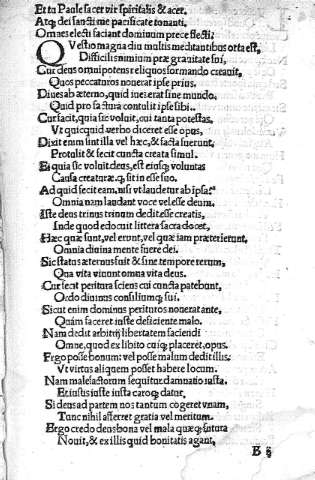 Et tu Paule sacer vir spiritalis & acer.
Atq; dei sancti me pacificate tonanti,
Omnes electi faciant dominum prece flecti.
QVestio magna diu multis meditantibus orta est,
Difficilis nimium præ grauitate sui,
Cur deus omnipotens reliquos formando creauit,
Quos peccaturos nouerat ipse prius.
Diues ab æterno, quid indiguerat sine mundo,
Quid pro factura contulit ipse sibi.
Cur facit, quia sic voluit, cui tanta potestas,
Vt quicquid verbo diceret esse opus,
Dixit enim vt illa vel hæc, & facta fuerunt,
Protulit & fecit cuncta creata simul.
Et quia sic voluit deus, est eiusq; voluntas
Causa creaturæq; sit in esse suo.
Ad quid fecit eam, nisi vt laudetur ab ipsa?
Omnia nam laudant voce vel esse deum.
Iste deus trinus trinum dedit esse creatis,
Inde quod edocuit littera sacra docet,
Hæc quæ sunt, vel erunt, vel quæ iam præterierunt,
Omnia diuina mente fuere dei.
Sic status æternus fuit & sine tempore rerum,
Qua vita viuunt omnia vita deus.
Cur fecit peritura sciens cui cuncta patebunt,
Ordo diuinus consiliumq; sui.
Sicut enim dominus perituros nouerat ante,
Quàm faceret iuste deficiente malo.
Nam dedit arbitrij libertatem faciendi
Omne, quod ex libito cuiq; placeret, opus.
Ergo posse bonum: vel posse malum dedit illis:
Vt virtus aliquem posset habere locum.
Nam malefactorum sequitur damnatio iusta.
Et iustis iuste iusta caroq; datur,
Si deus ad partem nos tantum cogeret vnam,
Tunc nihil afferret gratia vel meritum.
Ergo credo deus bona vel mala quæq; futura
Nouit, & ex illis quid bonitatis agant,
B